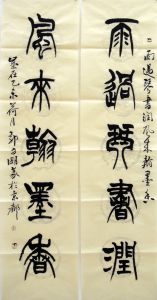 雨過琴書潤
風來翰墨香
雨過琴書潤風來翰墨香
歲在乙未荷月
於京都